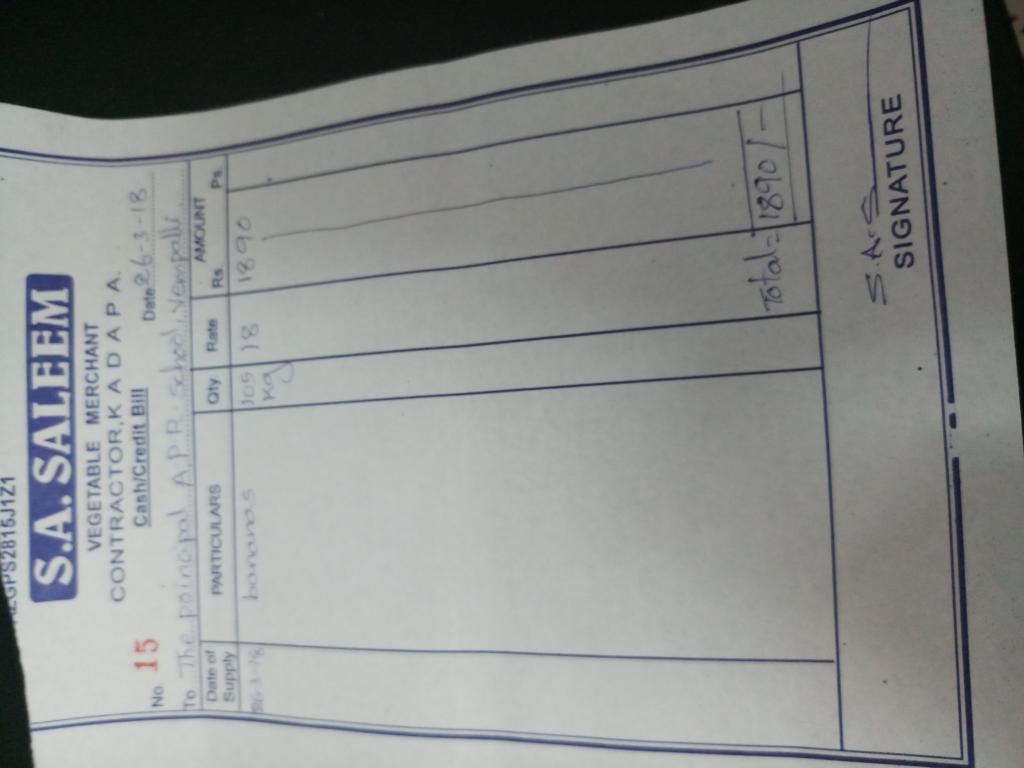 S.A. SALEEM
VEGETABLE MERCHANT
CONTRACTOR, K A D A P A.
Cash/Credit Bill
No. 15 Date 26-3-18
To The poincipal A.P.R. school, Vempalli
Date of Supply PARTICULARS Qty Rate AMOUNT Rs. Ps.
26-3-18 bananas 105 kg 18 1890
Total = 1890/-
S.A.S
SIGNATURE